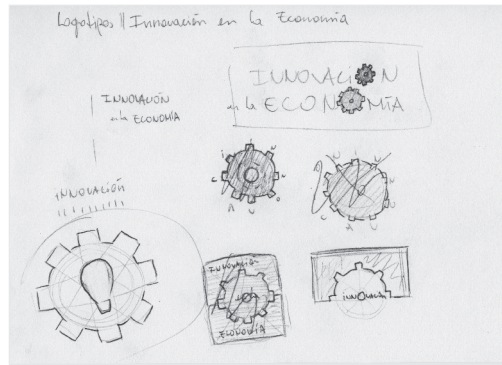 Logotipos || Innovación en la Economía
INNOVACIÓN
en la ECONOMÍA
INNOVACIÓN
en la ECONOMÍA
INNOVACIÓN
INNOVACIÓN
ECONOMÍA
INNOVACI